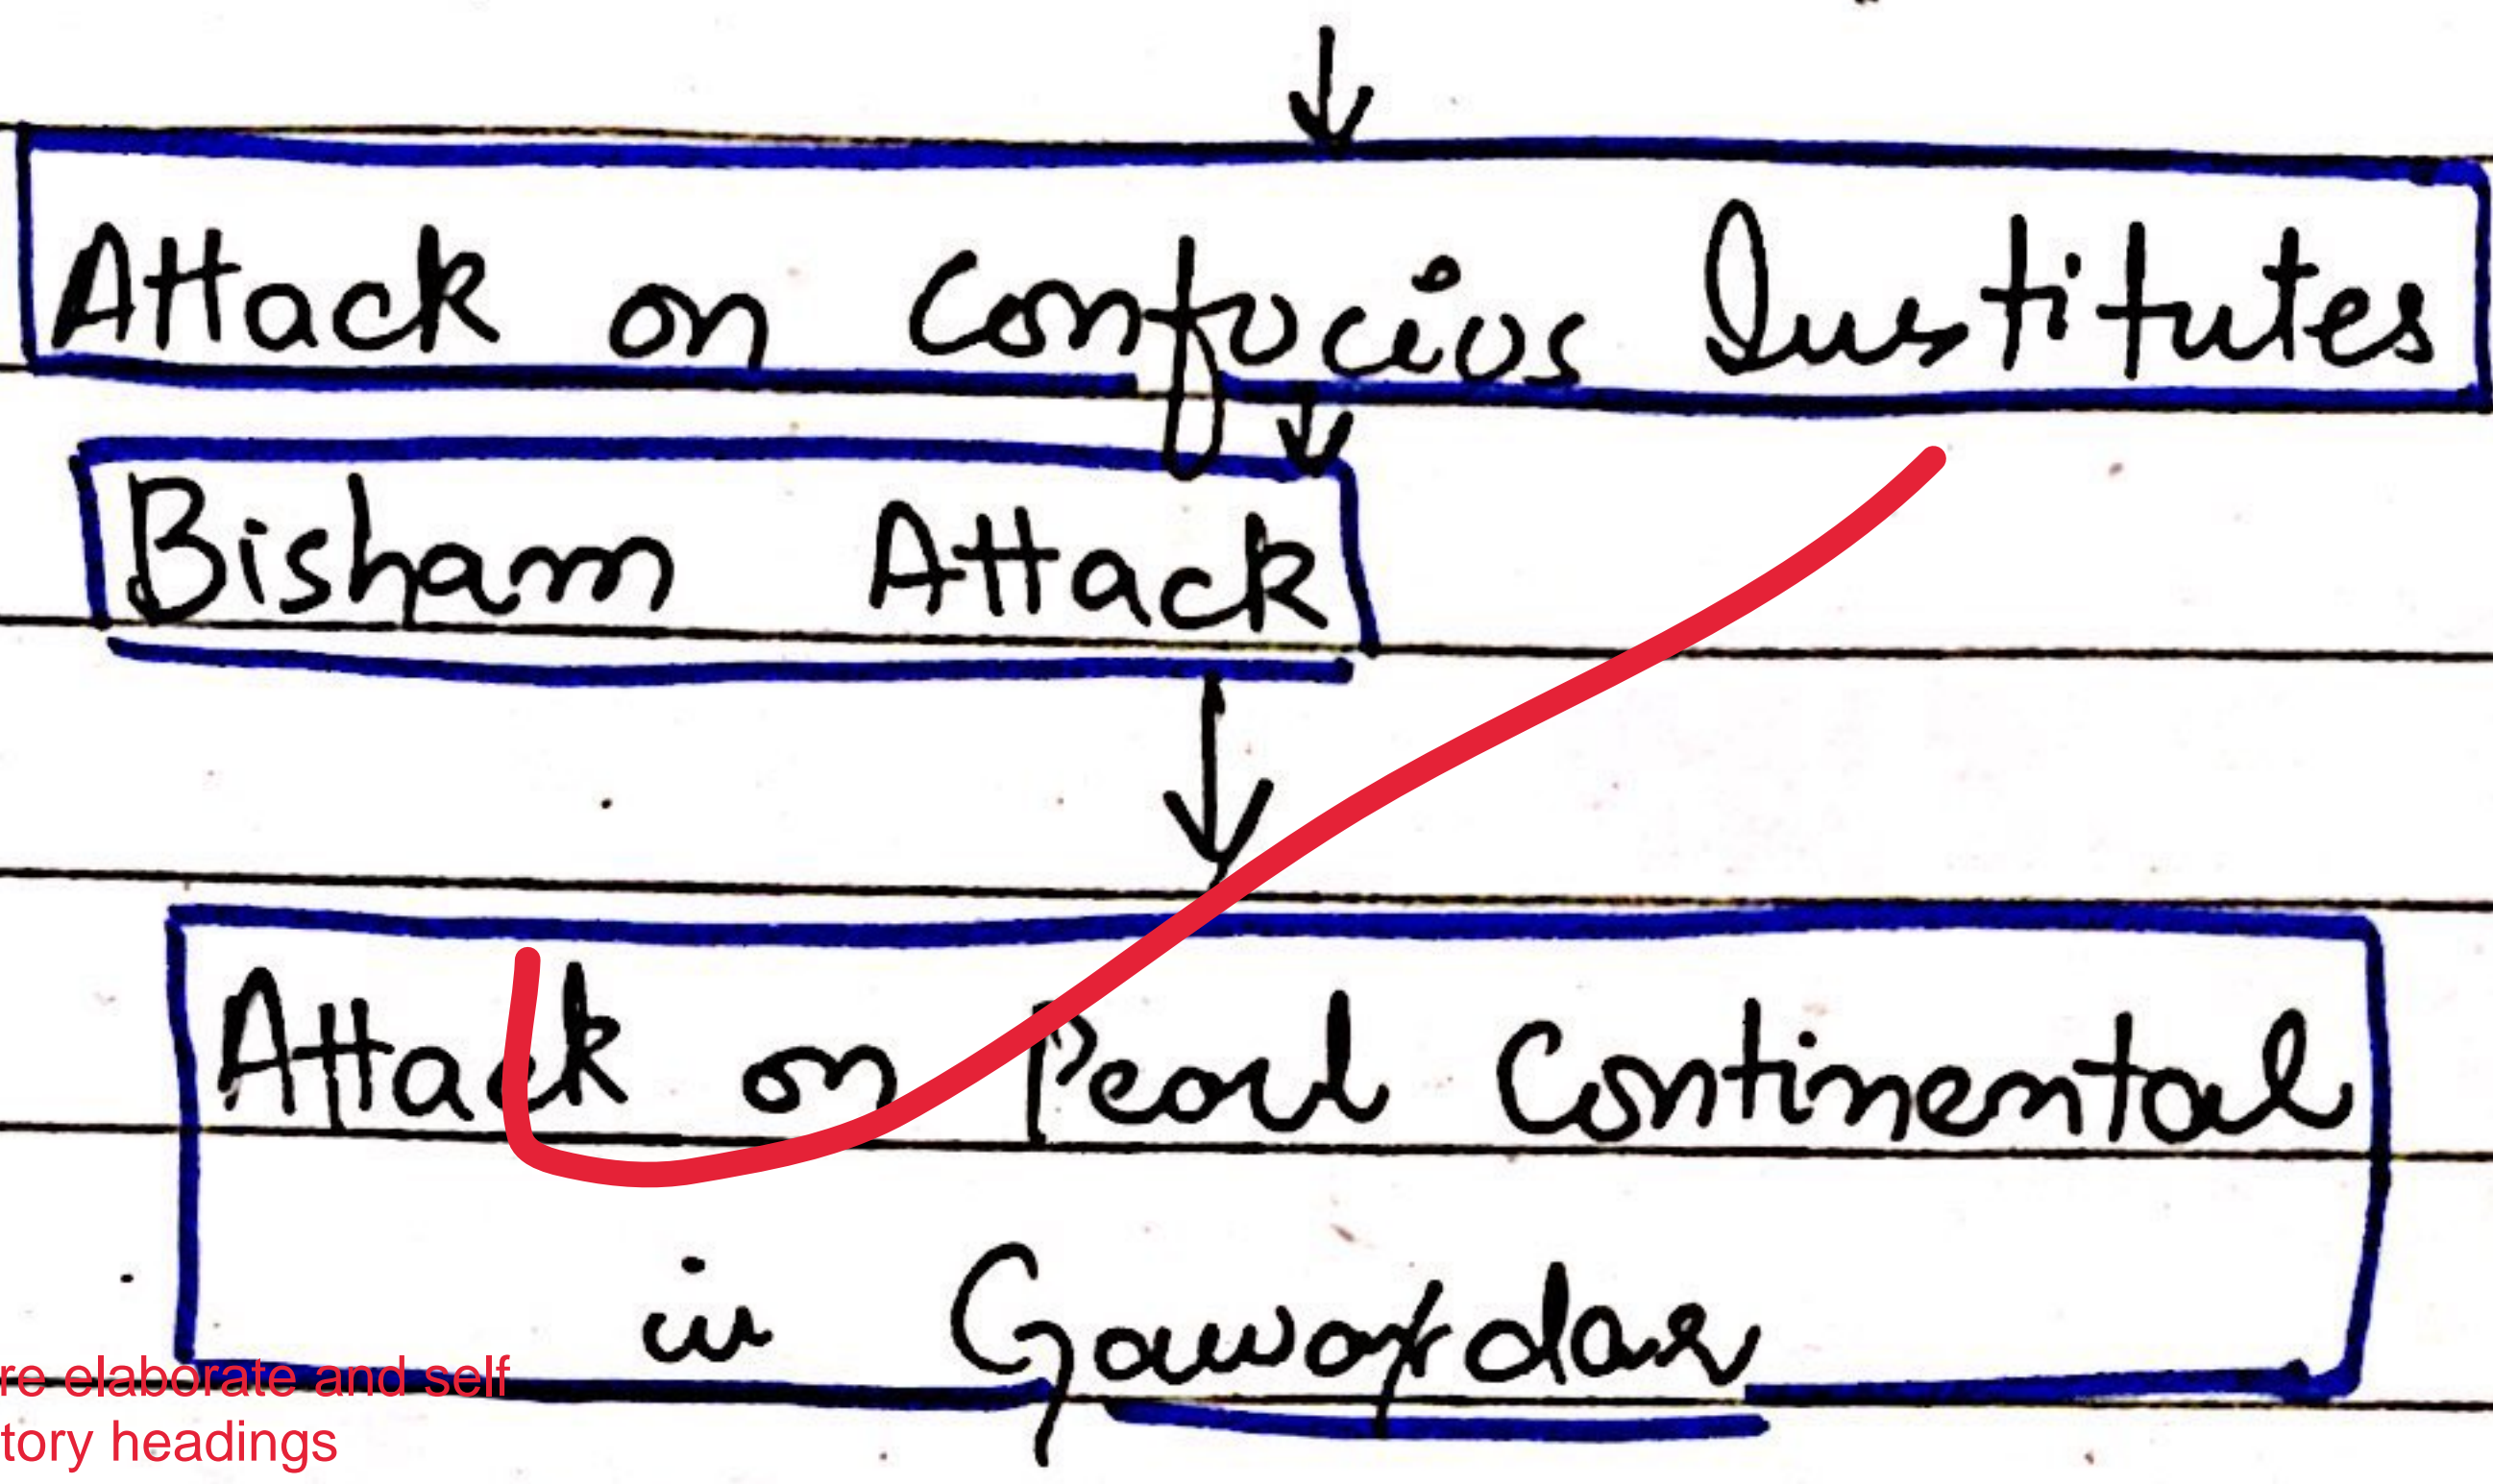 Attack on Confucius Institutes
Bisham Attack
Attack on Pearl Continental
in
re elaborate and self
tory headings